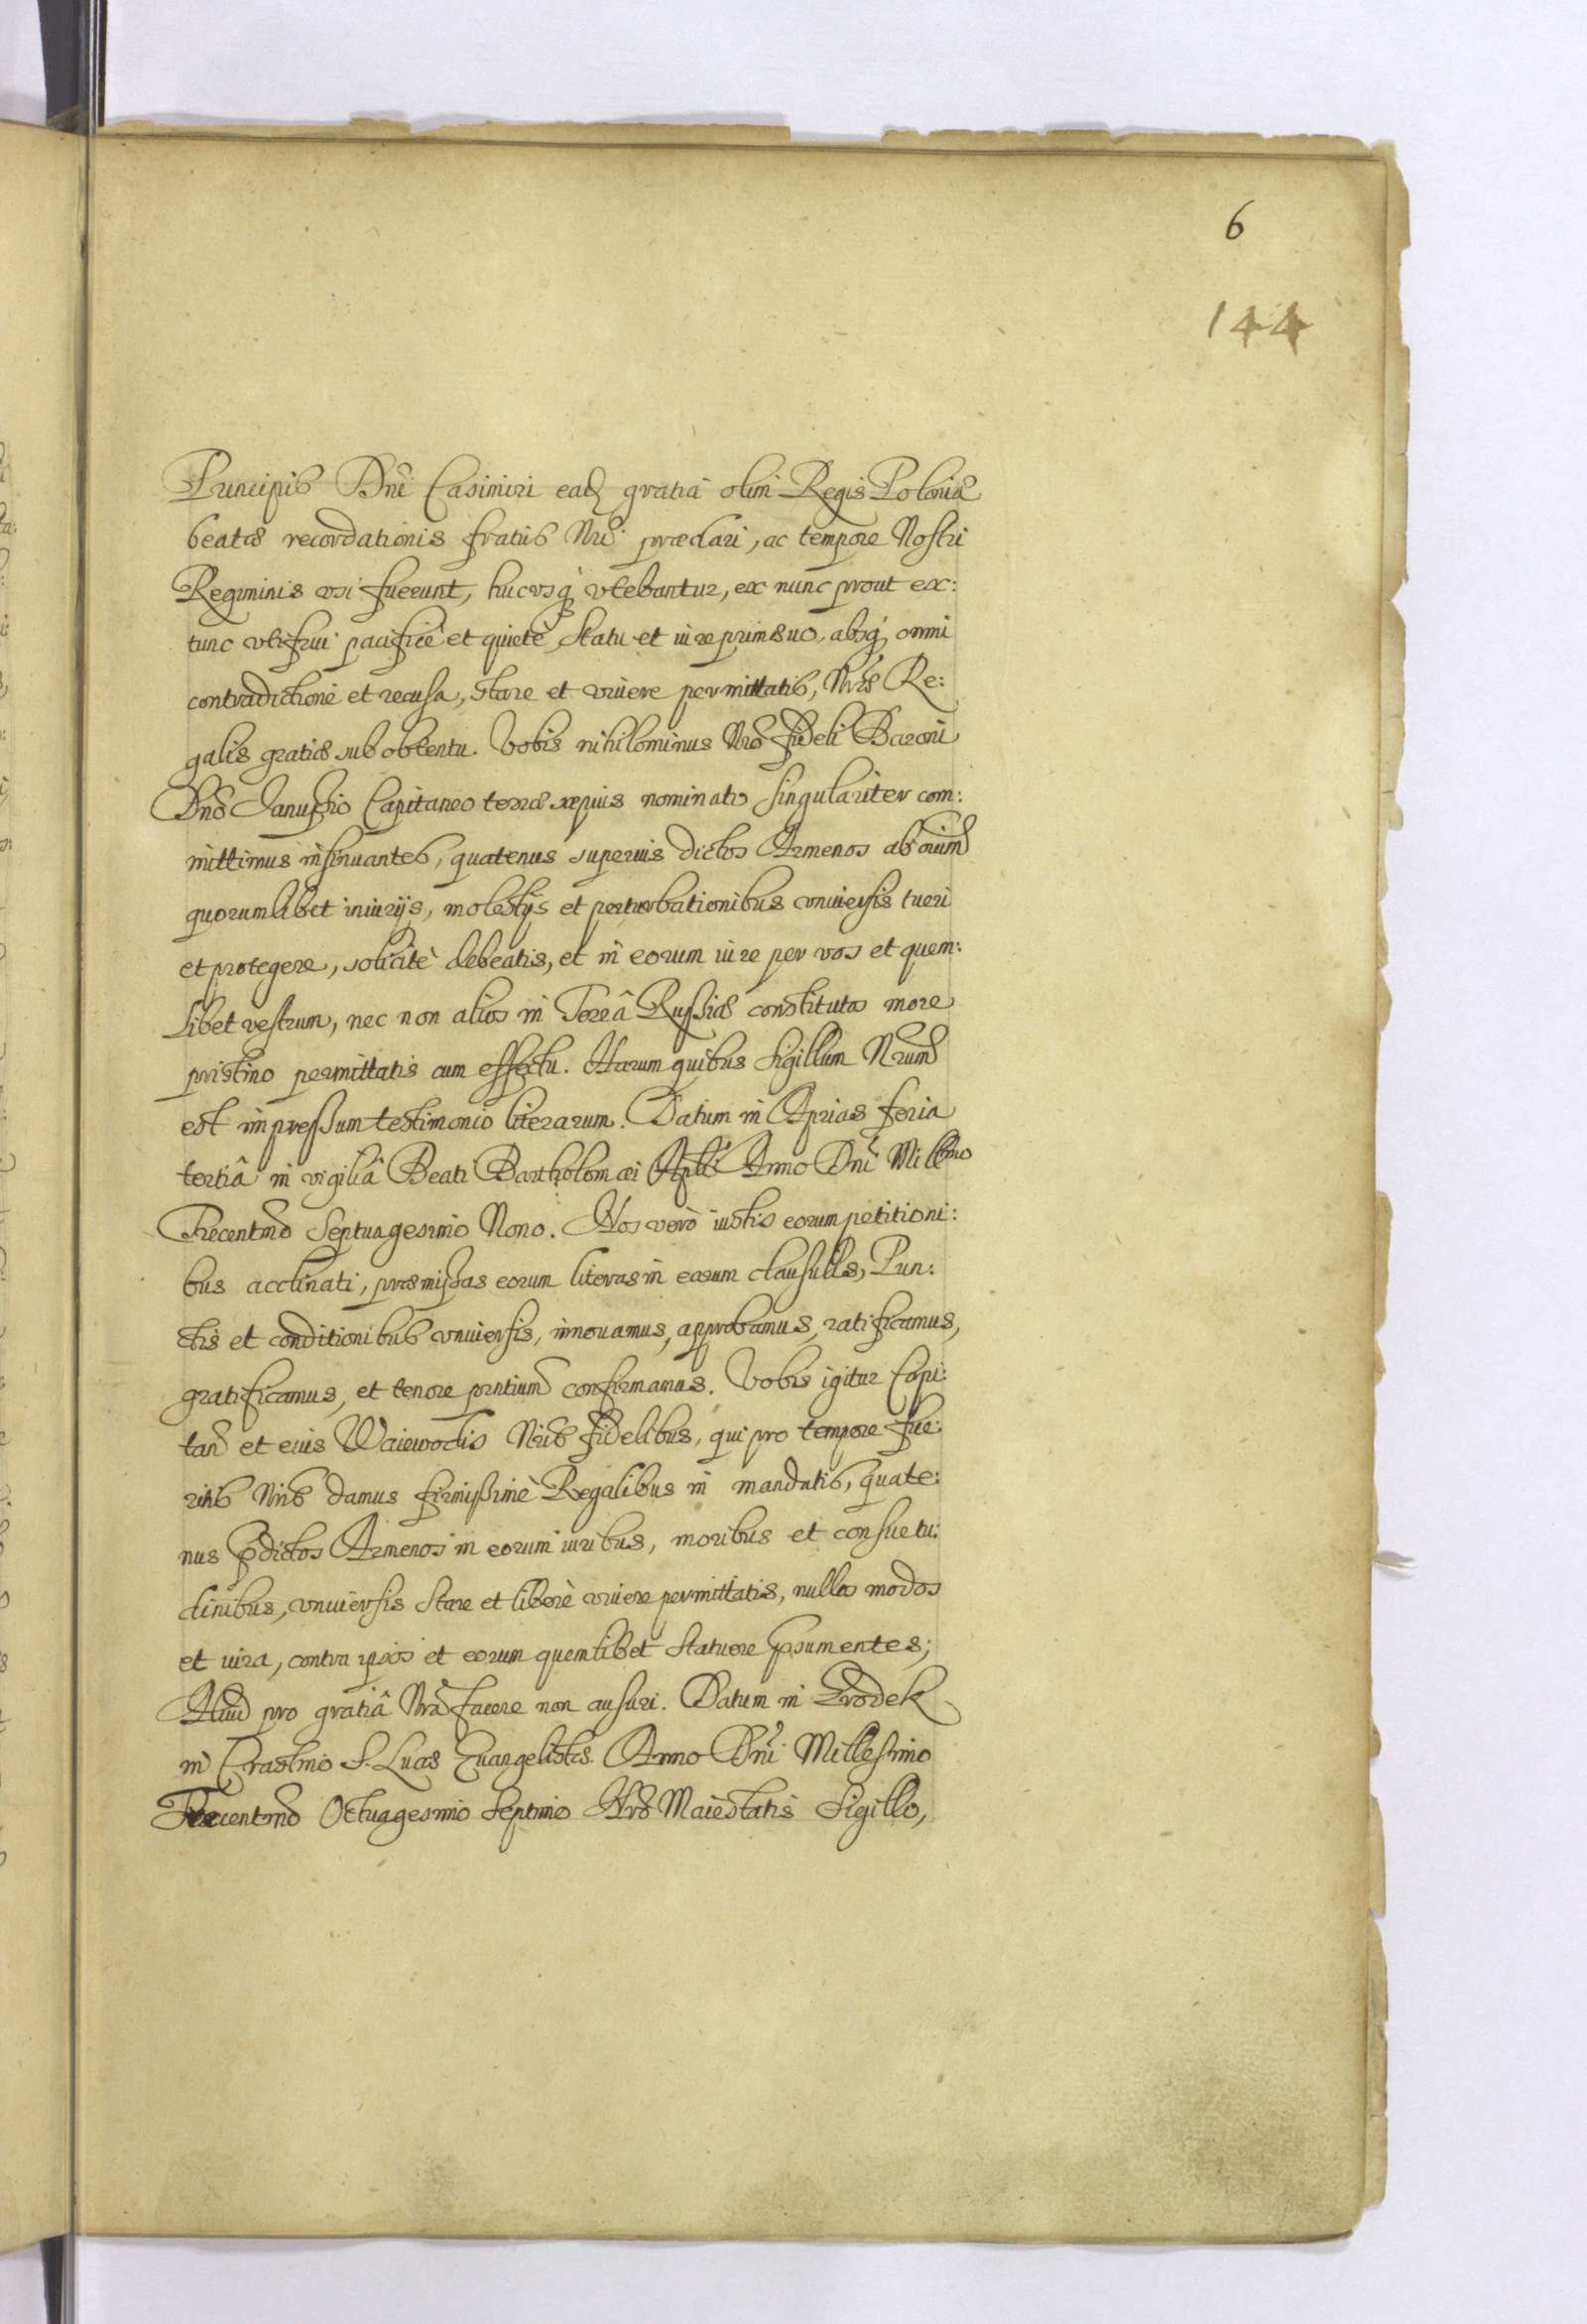 6
144
Principis Dni Casimiri eadē gratiâ olim Regis Poloniæ
beatæ recordationis fratris Nri præclari, ac tempore Nostri
Regiminis vsi fuerunt, hucvsq vtebantur, ex nunc prout ex:
tunc vti frui pacificè et quietè, statu et iure primæuo, absq omni
contradictione et recusa, stare et viuere permittatis, Nræ Re:
galis gratiæ sub obtentu. Vobis nihilominus Nro fideli Baroni
Dno Janussio Capitaneo terræ sæpius nominatæ singulariter com:
mittimus insinuantes, quatenus superius dictos Armenos ab omnium
quorumlibet iniurijs, molestijs et perturbationibus vniuersis tueri
et protegere, solicitè debeatis, et in eorum iure per vos et quem:
libet vestrum, nec non alios in Terrâ Russiæ constitutos more
pristino permittatis cum effectu. Harum quibus Sigillum Nrum
est impressum testimonio literarum. Datum in Aprias feria
tertiâ in vigiliâ Beati Bartholomæi Apli Anno Dni Millmo
Trecentmo Septuagesimo Nono. Nos verò iustis eorum petitioni:
bus acclinati, præmissas eorum literas in earum clausulis, Pun:
ctis et conditionibus vniuersis, innouamus, approbamus, ratificamus,
gratificamus, et tenore prntium confirmamus. Vobis igitur Capi:
tan et eius Waiewodis Nris fidelibus, qui pro tempore fue:
ritis Nris damus firmissimè Regalibus in mandatis, quate:
nus pdictos Armenos in eorum iuribus, moribus et consuetu:
dinibus, vniuersis stare et liberè viuere permittatis, nullos modos
et iura, contra ipsos et eorum quemlibet statuere psumentes;
Aliud pro gratiâ Nrâ facere non ausuri. Datum in Grodek
in Crastino S. Lucæ Euangelistæ. Anno Dni Millesimo
Trecentmo Octuagesimo Septimo Nro Maiestatis Sigillo,